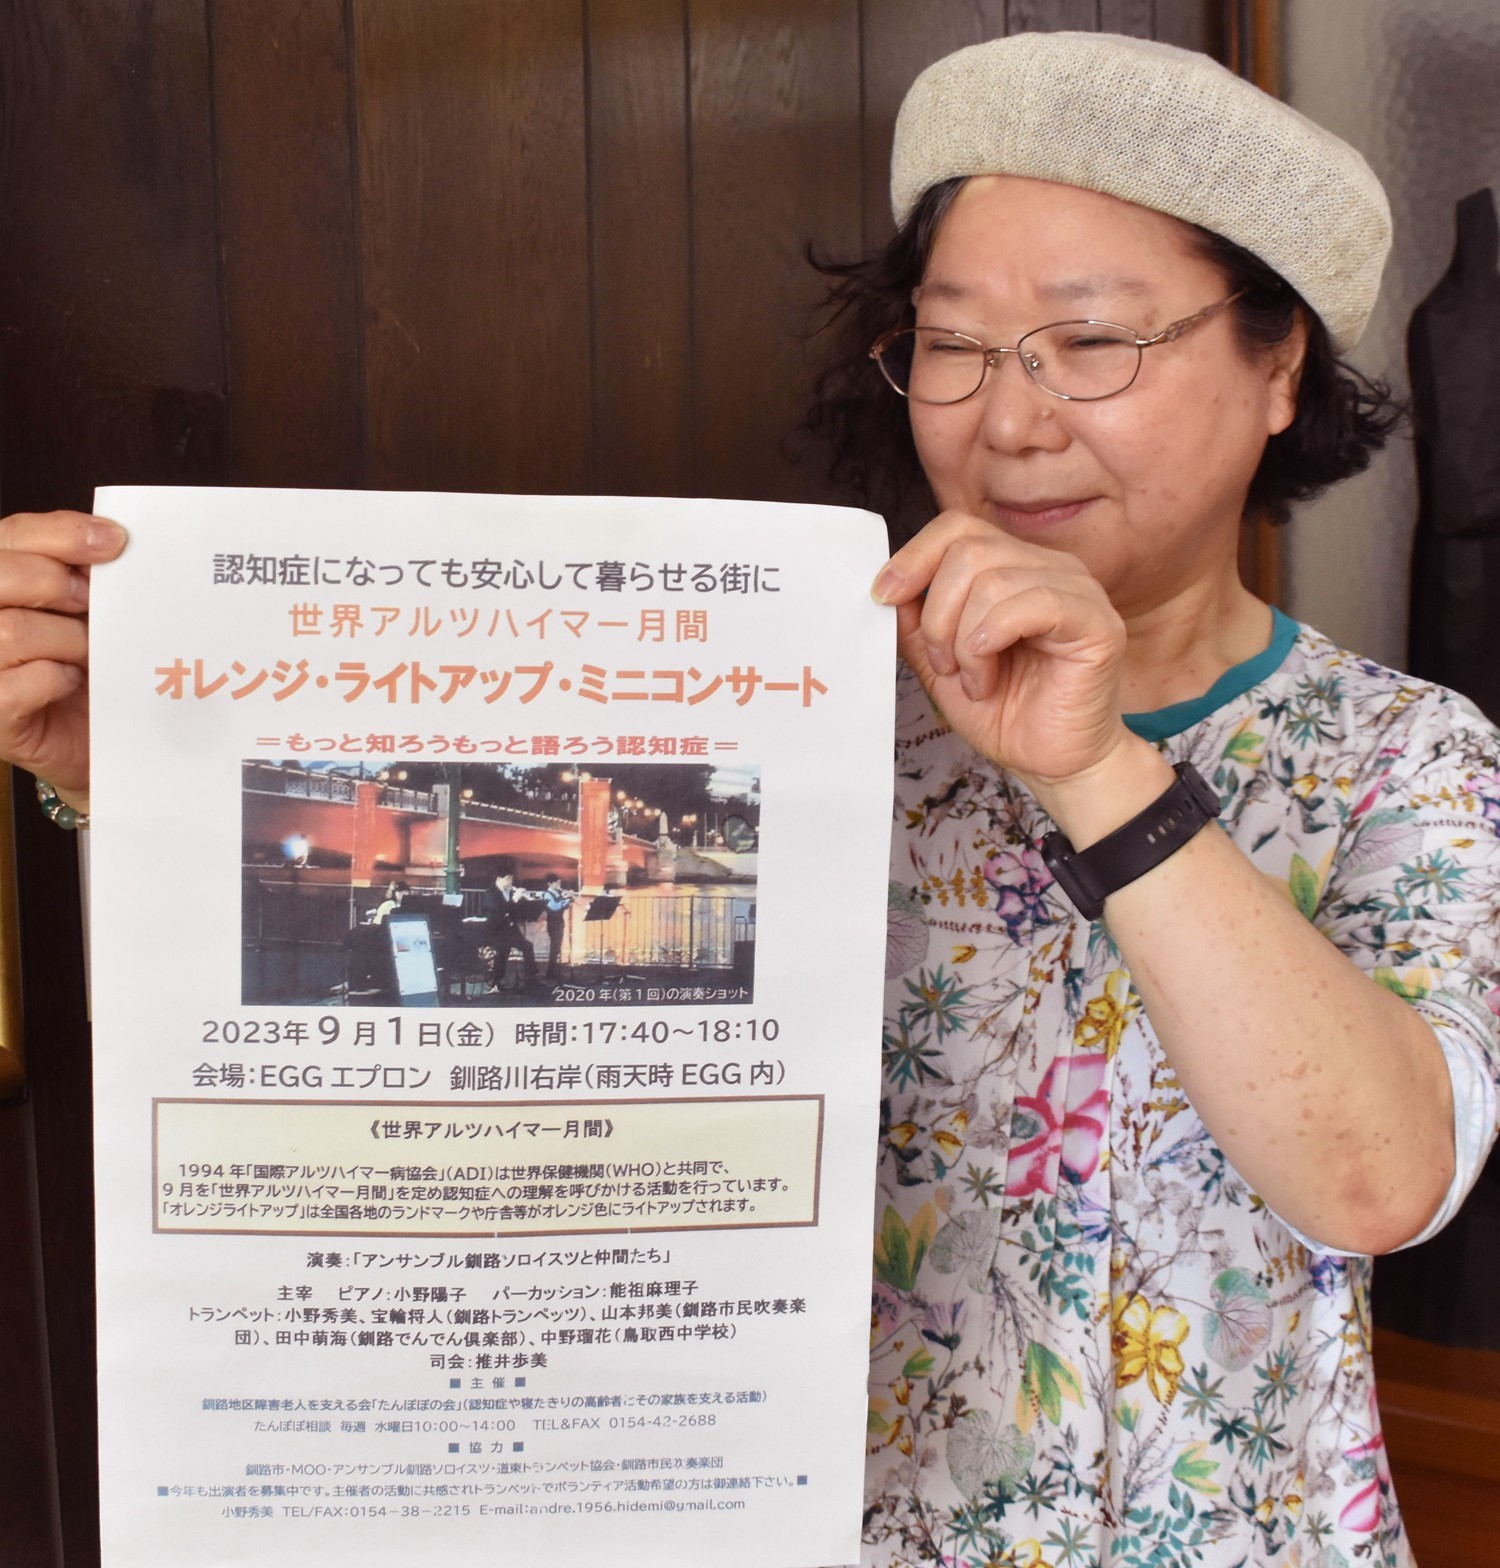 認知症になっても安心して暮らせる街に
世界アルツハイマー月間
オレンジ・ライトアップ・ミニコンサート
＝もっと知ろうもっと語ろう認知症＝
2020年(第1回)の演奏ショット
2023年9月1日(金) 時間:17:40～18:10
会場:EGGエプロン 釧路川右岸(雨天時EGG内)
《世界アルツハイマー月間》
1994年「国際アルツハイマー病協会」(ADI)は世界保健機関(WHO)と共同で、
9月を「世界アルツハイマー月間」を定め認知症への理解を呼びかける活動を行っています。
「オレンジライトアップ」は全国各地のランドマークや庁舎等がオレンジ色にライトアップされます。
演奏:「アンサンブル釧路ソロイスツと仲間たち」
主宰 ピアノ:小野陽子 パーカッション:能祖麻理子
トランペット:小野秀美、宝輪将人(釧路トランペッツ)、山本邦美(釧路市民吹奏楽
団)、田中萌海(釧路でんでん倶楽部)、中野瑠花(鳥取西中学校)
司会:推井歩美
■ 主 催 ■
釧路地区障害老人を支える会「たんぽぽの会」(認知症や寝たきりの高齢者とその家族を支える活動)
たんぽぽ相談 毎週 水曜日10:00～14:00 TEL&FAX 0154-42-2688
■ 協 力 ■
釧路市・MOO・アンサンブル釧路ソロイスツ・道東トランペット協会・釧路市民吹奏楽団
■今年も出演者を募集中です。主催者の活動に共感されトランペットでボランティア活動希望の方は御連絡下さい。■
小野秀美 TEL/FAX:0154-38-2215 E-mail:andre.1956.hidemi@gmail.com